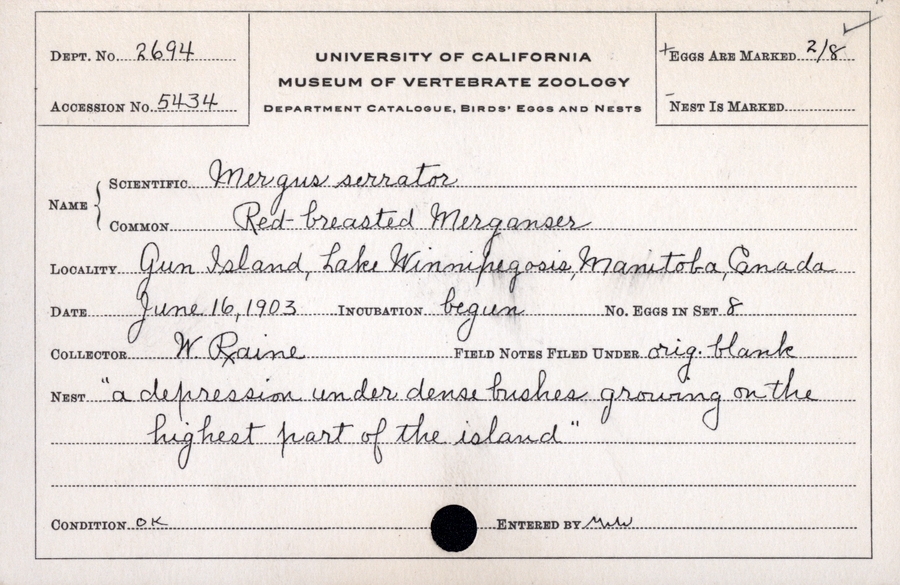 DEPT. No. 2694
ACCESSION No. 5434
UNIVERSITY OF CALIFORNIA
MUSEUM OF VERTEBRATE ZOOLOGY
DEPARTMENT CATALOGUE, BIRDS' EGGS AND NESTS
+EGGS ARE MARKED 2/8
-NEST IS MARKED
NAME { SCIENTIFIC Mergus serrator
COMMON Red-breasted Merganser
LOCALITY Gun Island, Lake Winnipegosis, Manitoba, Canada
DATE June 16, 1903 INCUBATION begun No. EGGS IN SET 8
COLLECTOR W. Raine FIELD NOTES FILED UNDER orig. blank
NEST "a depression under dense bushes growing on the
highest part of the island"
CONDITION OK ENTERED BY